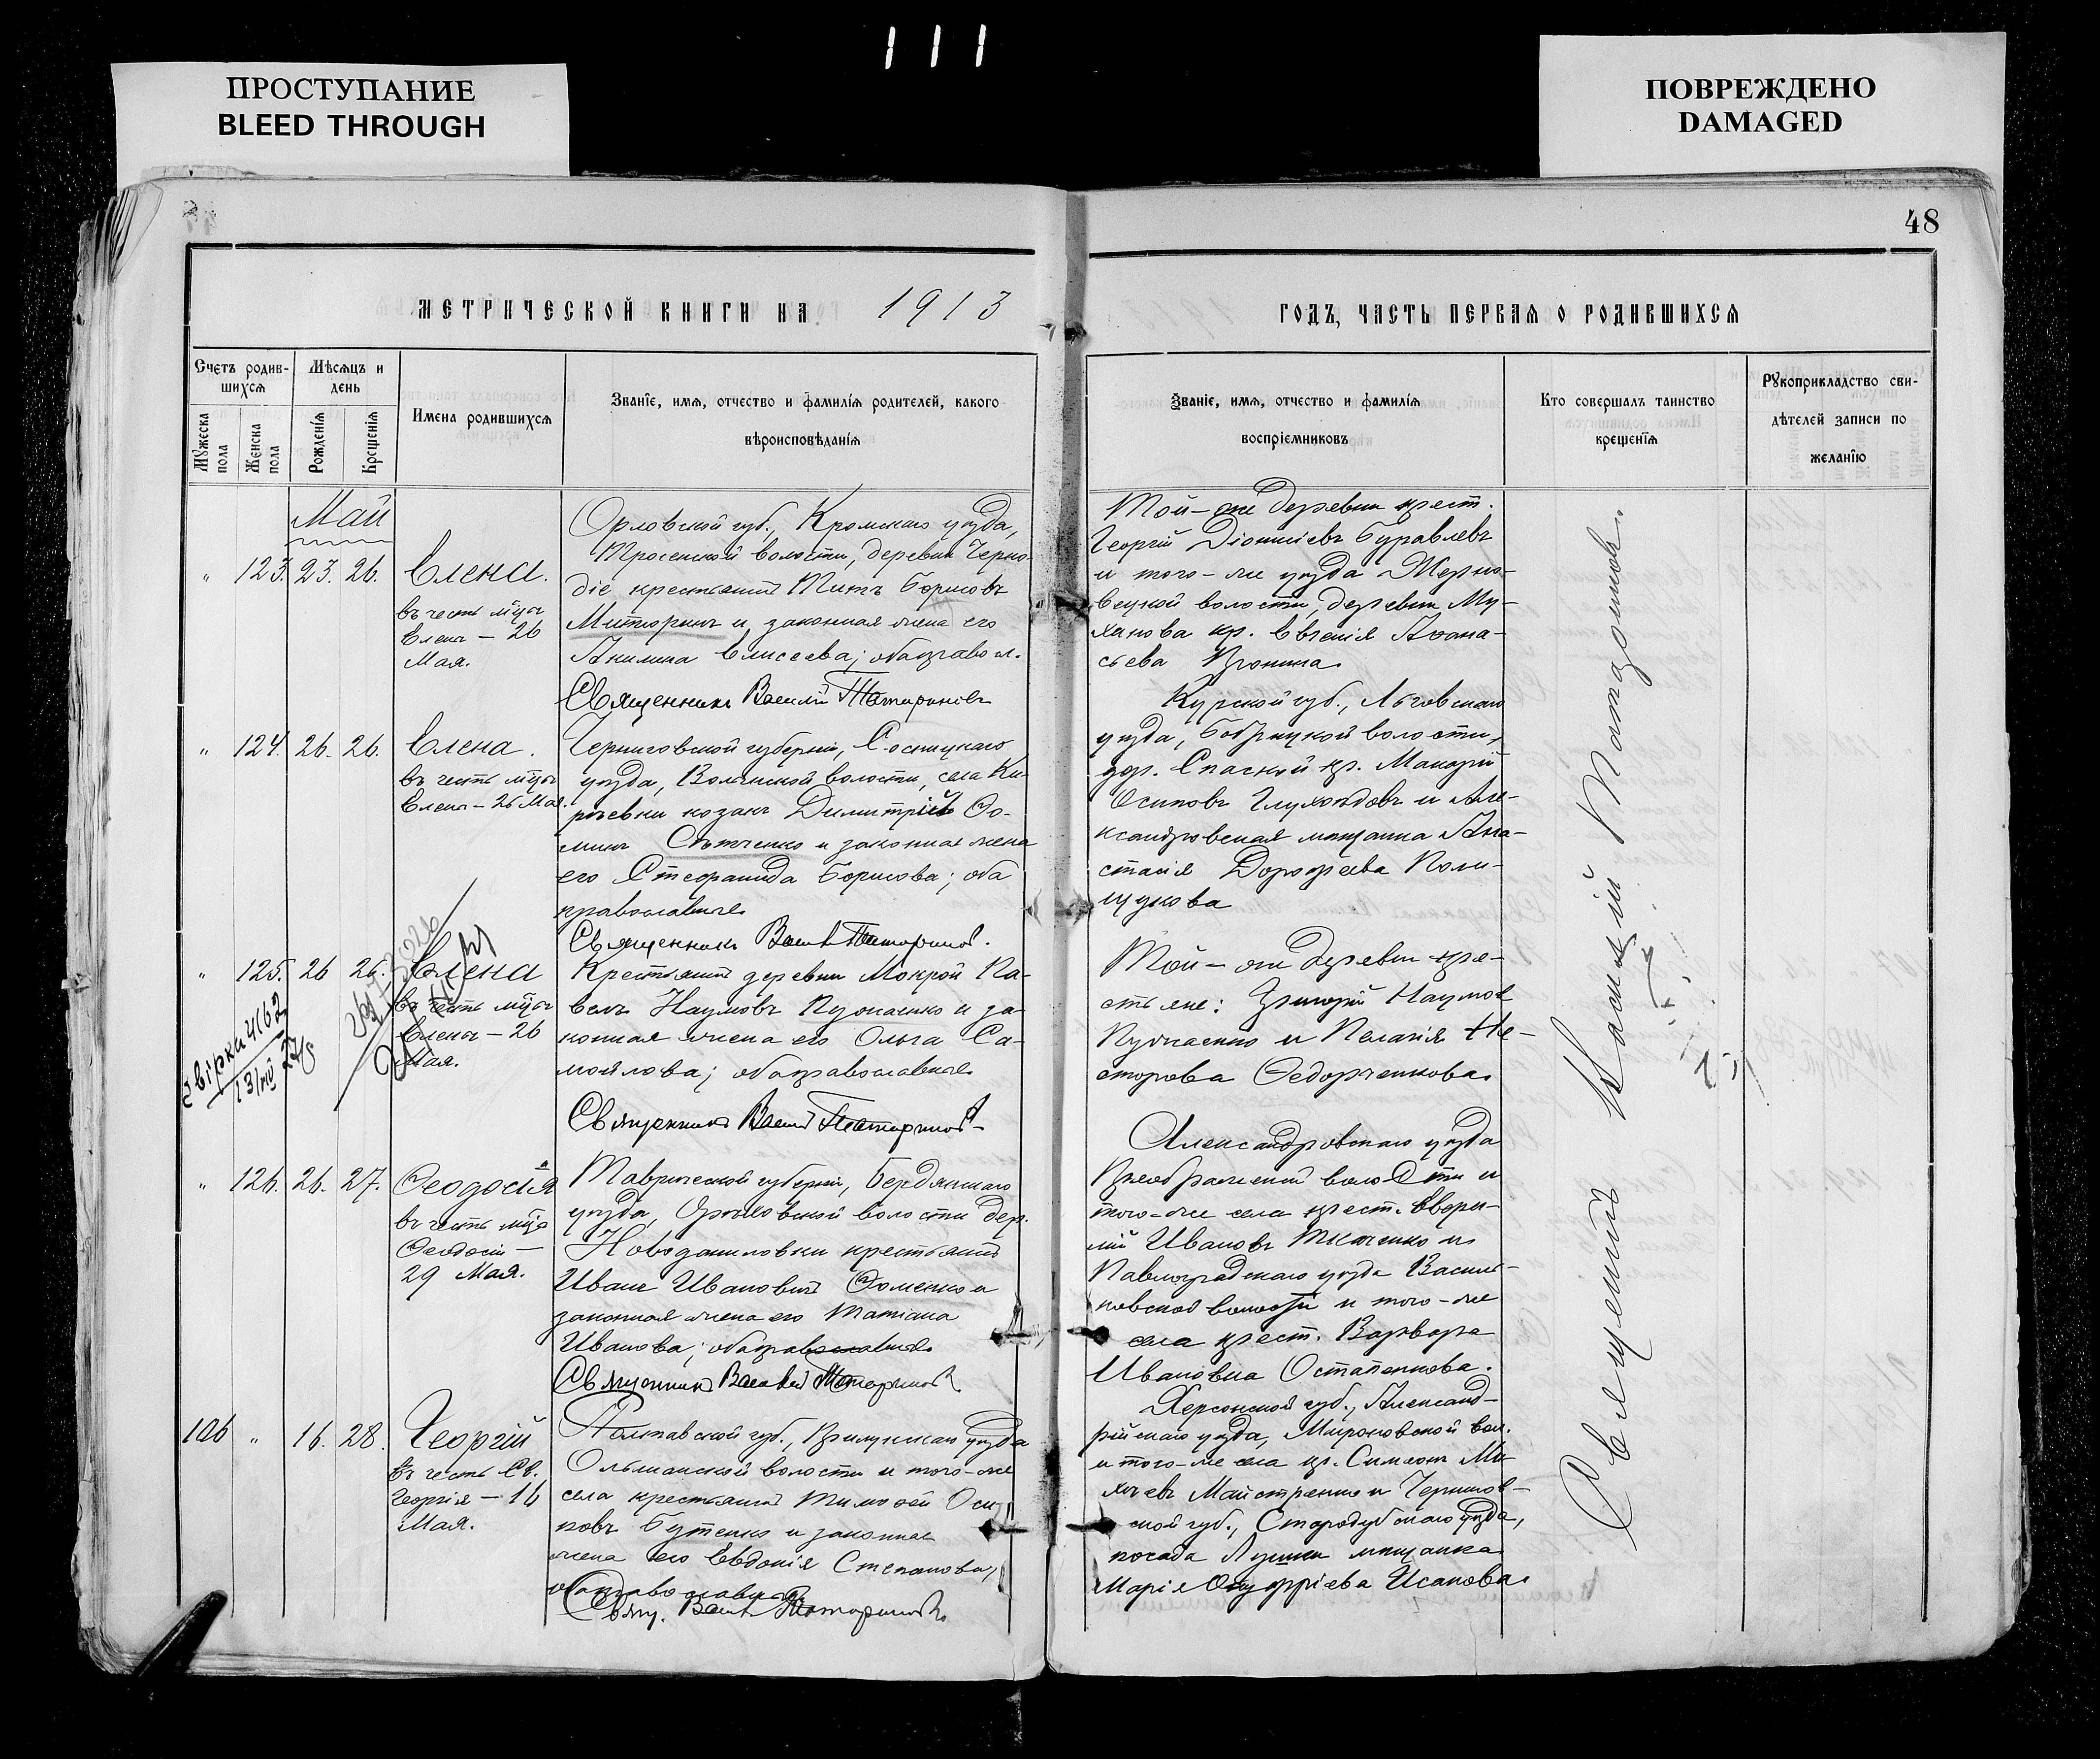 ПРОСТУПАНИЕ
BLEED THROUGH
111
ПОВРЕЖДЕНО
DAMAGED
48
МЕТРИЧЕСКОЙ КНИГИ НА 1913
ГОДЪ, ЧАСТЬ ПЕРВАЯ О РОДИВШИХСЯ
Счетъ родив-
шихся
Мужеска
пола
Женска
пола
Мѣсяцъ и
день
Рожденія
Крещенія
Имена родившихся
Званіе, имя, отчество и фамилія родителей, какого
вѣроисповѣданія
Званіе, имя, отчество и фамилія
воспріемниковъ
Кто совершалъ таинство
крещенія
Рукоприкладство сви-
дѣтелей записи по
желанію
Май
„ 123. 23. 26. Елена.
въ честь мўч
Елены — 26
Мая.
Орловской губ., Кромскаго уѣзда,
Тросенской волости, деревни Черно-
діе крестьянинъ Титъ Борисовъ
Митюринъ и законная жена его
Акилина Елисеева; оба правосл.
Священникъ Василій Таториновъ
Той-же деревни крест.
Георгій Діонисіевъ Буравлевъ
и того-же уѣзда Жерно-
вецкой волости, деревни Му-
ханова кр. Евгенія Аѳана-
сьева Пронина.
„ 124. 26. 26. Елена.
въ честь мўч
Елены — 26 Мая.
Черниговской губерніи, Сосницкаго
уѣзда, Волынской волости, села Ки-
рѣевки козакъ Димитрій Ѳо-
минъ и законная жена
его Стефанида Борисова; оба
православные
Священникъ Васил Таторинов.
Курской губ., Льговскаго
уѣзда, волости,
дер. Спаской кр. Макарій
Осиповъ и Але-
ксандровская мѣщанка Ана-
стасія Дорофеева Поли-
щукова
„ 125. 26 26. Елена
въ честь мўч
Елены — 26
Мая.
Звірка 4162
Крестьянинъ деревни Мокрой Па-
велъ Наумовъ Пужаенко и за-
конная жена его Ольга Са-
мойлова; оба православные
Священникъ Васил Таторинов
Той-же деревни кре-
стьяне: Григорій Наумов
Пужаенко и Пелагія Не-
сторова Ѳедорченкова.
„ 126. 26. 27. Ѳеодосія
въ честь мўч
Ѳеодосіи —
29 Мая.
Таврической губерніи, Бердянскаго
уѣзда, волости дер.
Новоданиловки крестьянинъ
Иванъ Ивановичъ Ѳоменко и
законная жена его Татіана
Иванова; оба православные
Священникъ Василій Таторинов
Александровскаго уѣзда
Преображенской волости и
того-же села крест.
Ивановъ Ткаченко и
Павлоградскаго уѣзда Василь-
ковской волости и того-же
села крест. Варвара
Ивановна Остапенкова.
106 „ 16. 28. Георгій
въ честь Св.
Георгія — 16
Мая.
Полтавской губ., Прилукскаго уѣзда
Ольшанской волости и того-же
села крестьянинъ Тимоѳей Оси-
повъ Бутенко и законная
жена его Евдокія Степанова,
оба православные.
Свящ. Васил Таторинов
Херсонской губ., Александ-
рійскаго уѣзда, вол.
и того-же села кр. Симеонъ Ми-
Майстренко и Чернигов-
ской губ., Стародубскаго уѣзда,
посада Лужки мѣщанка
Марія Онуфріева Исакова.
Священникъ Василій Таторинов